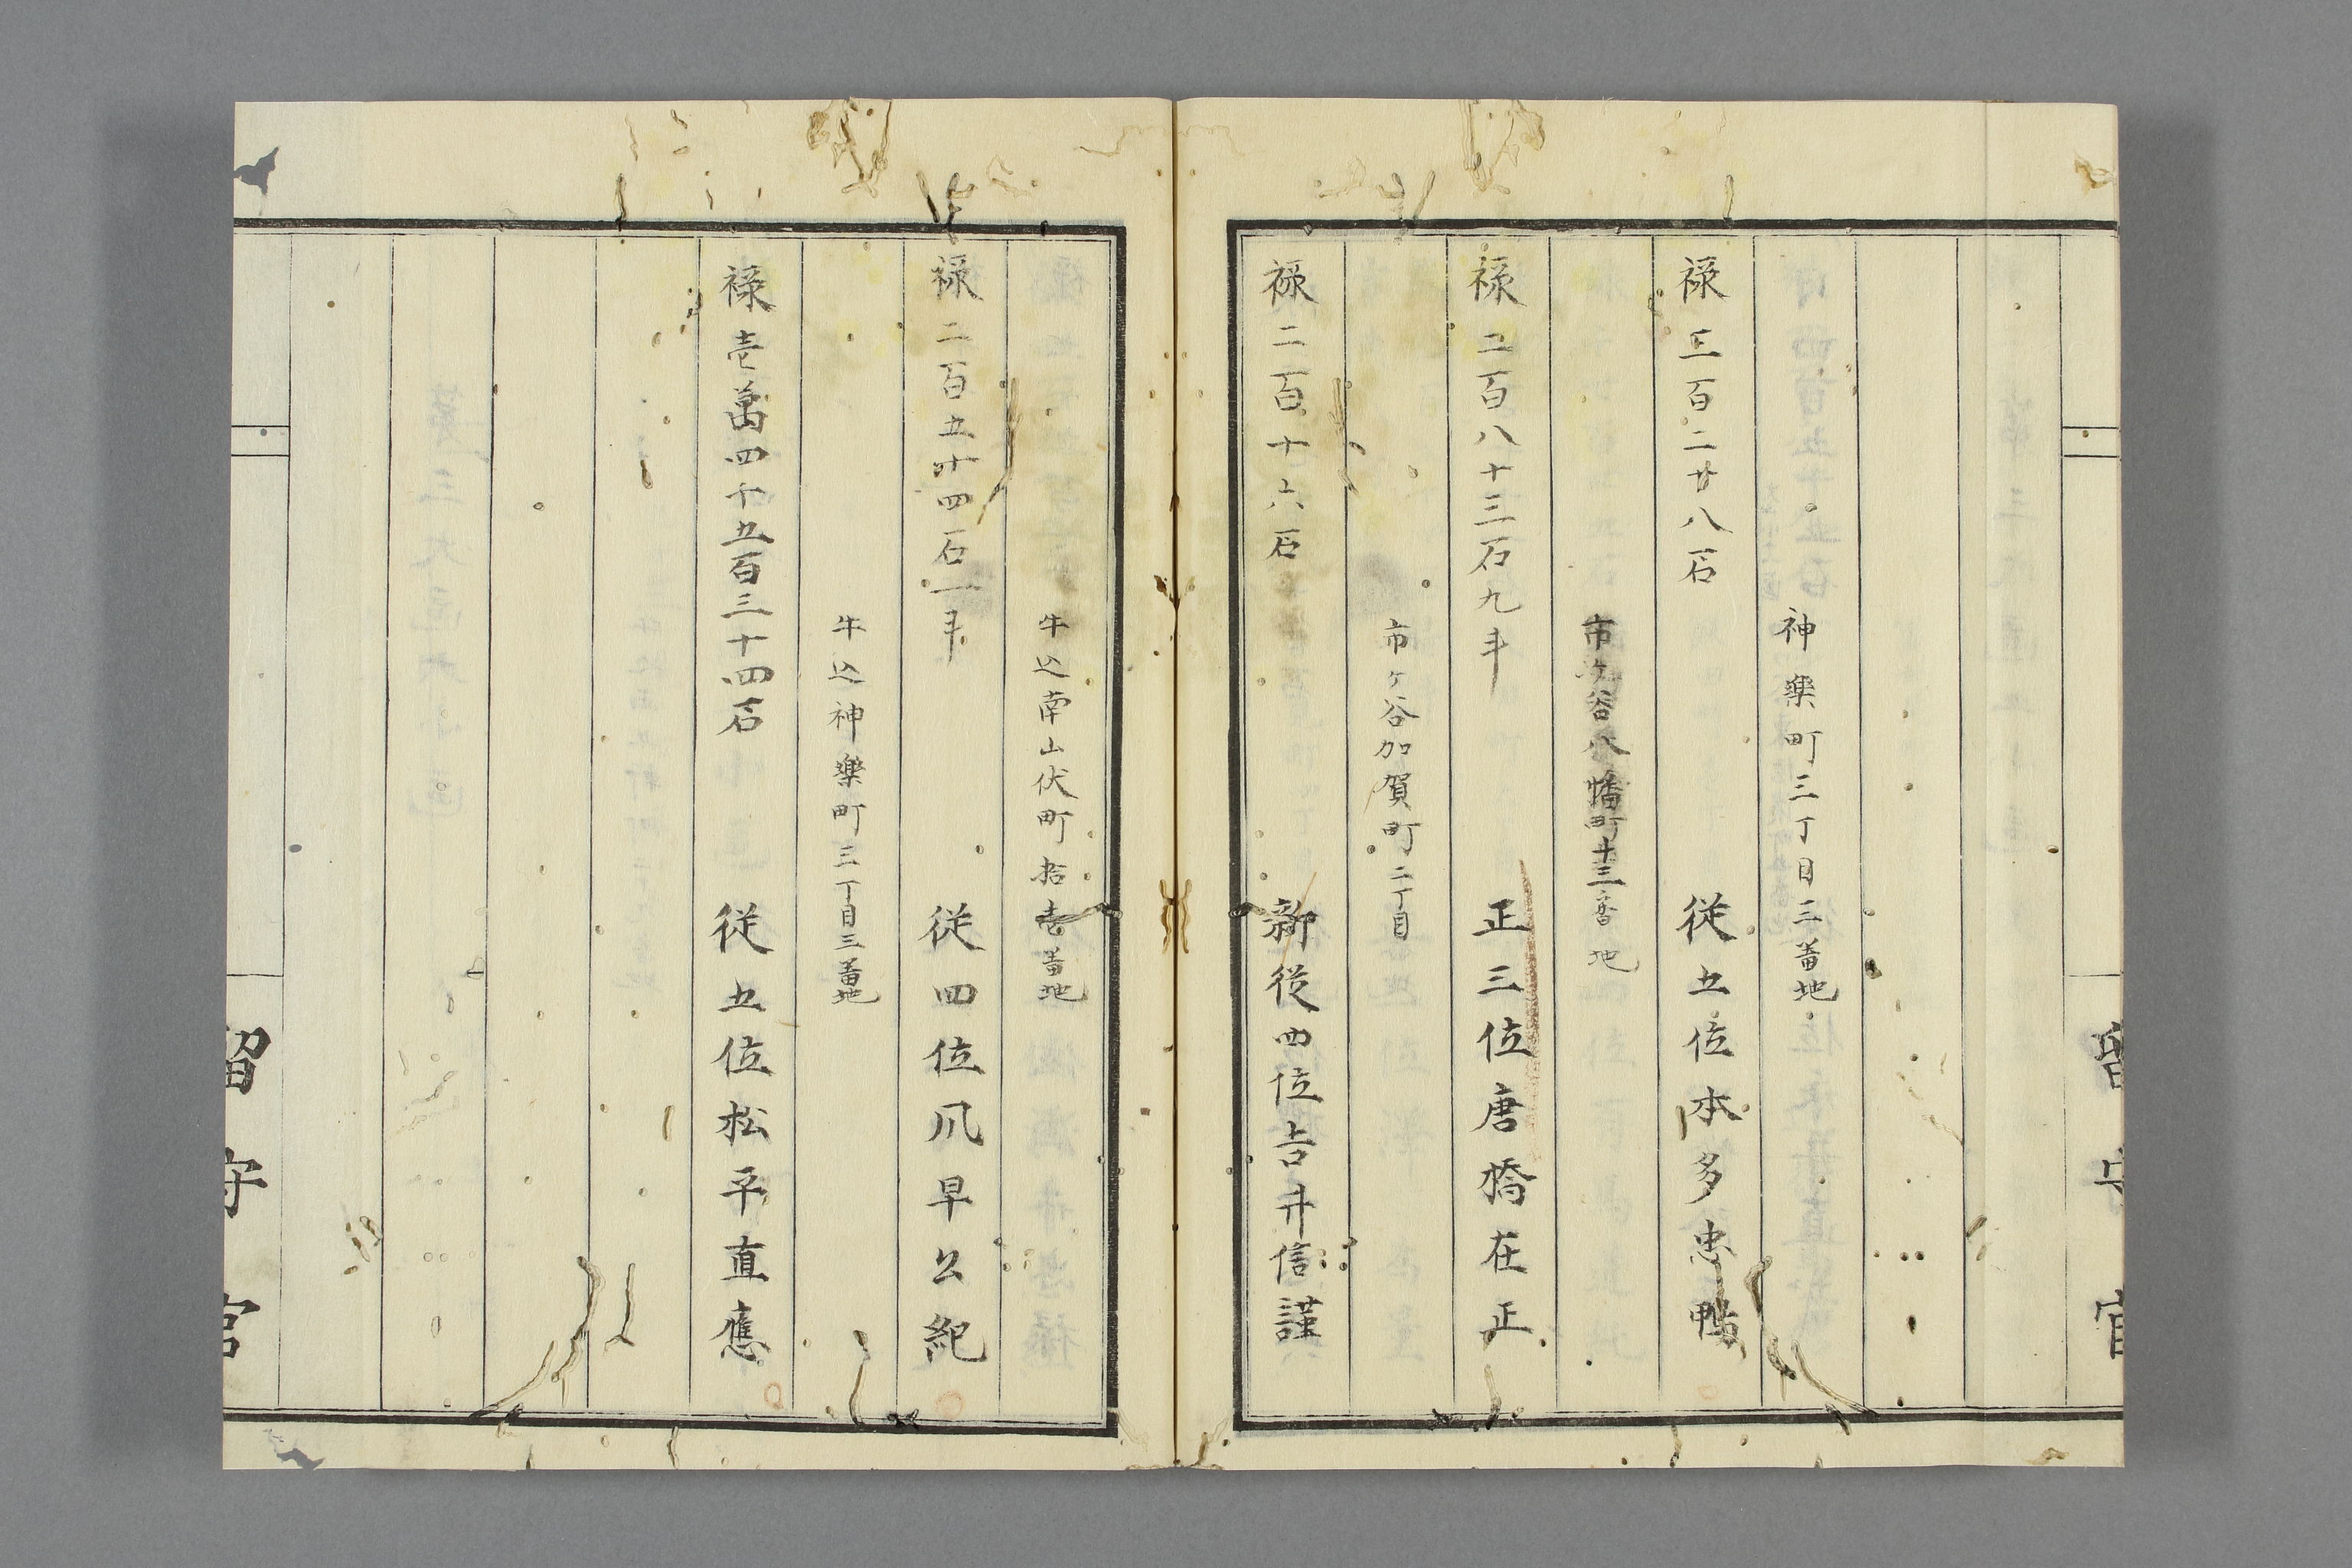 神樂町三丁目三番地
禄三百二廿八石 従五位本多忠鵬
市ヶ谷八幡町十三番地
禄二百八十三石九斗 正三位唐橋在正
市ヶ谷加賀町二丁目
禄二百十六石 新従四位吉井信謹
牛込南山伏町拾壱番地
禄二百五十四石一斗 従四位風早公紀
牛込神樂町三丁目三番地
禄壱萬四千五百三十四石 従五位松平直應
留守官
留守官